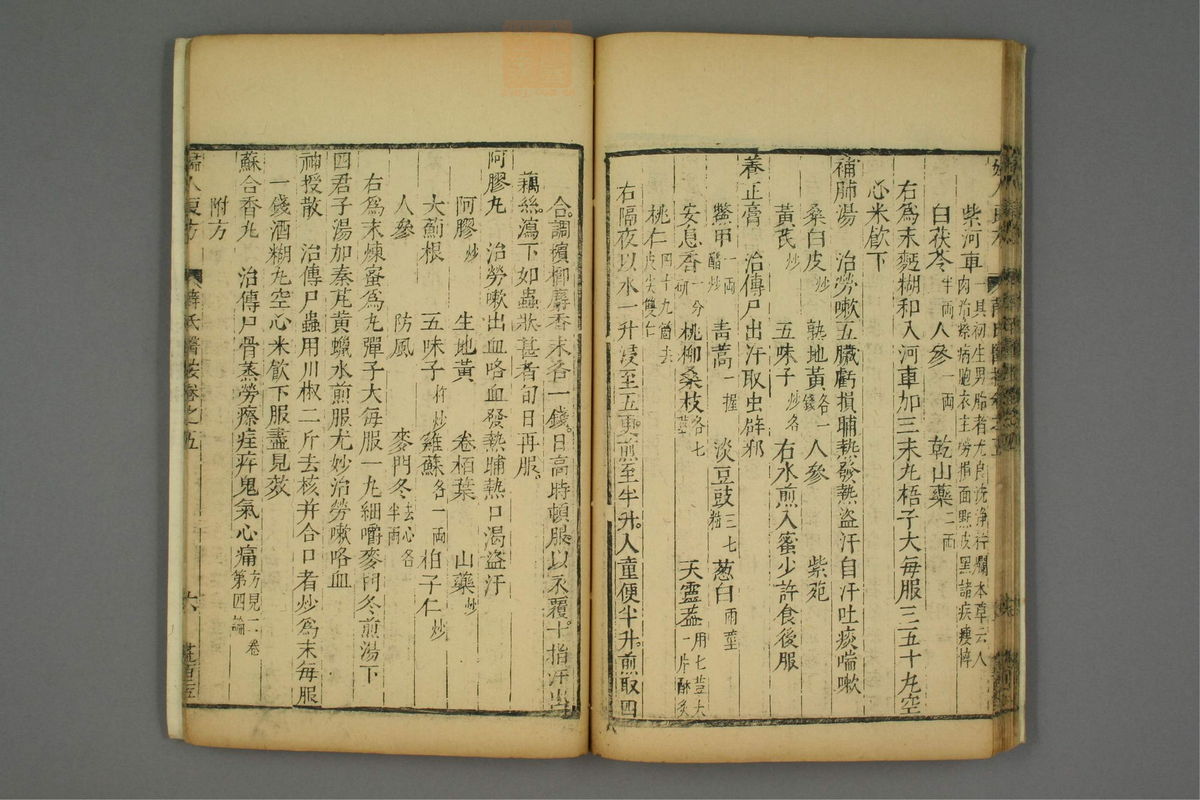 婦人良方
柴河車一具初生男胎者尤良洗淨杵爛本草云人
肉治瘵病胞衣主勞損面䵟皮黑諸疾瘦悴
白茯苓半兩 人參一兩 乾山藥二兩
右爲末麪糊和入河車加三末丸梧子大每服三五十丸空
心米飲下
補肺湯 治勞嗽五臟虧損晡熱發熱盜汗自汗吐痰喘嗽
桑白皮炒 熟地黃各二錢 人參 紫菀
黃芪炒 五味子炒各 右水煎入蜜少許食後服
養正膏 治傳尸出汗取虫辟邪
鱉甲一兩醋炒 青蒿一握 淡豆豉三七粒 葱白兩莖
安息香一分研 桃柳桑枝各七莖 天靈蓋用七荳大一片酥炙
桃仁四十九箇去皮尖雙仁
右隔夜以水一升浸至五更煎至半升入童便半升煎取四
合調檳榔麝香末各一錢日高時頓服以衣覆十指汗出
藕絲蕩下如蟲狀甚者旬日再服
阿膠丸 治勞嗽出血咯血發熱晡熱口渴盜汗
阿膠炒 生地黃 卷栢葉 山藥炒
大薊根 五味子杵炒 雞蘇各一兩 栢子仁炒
人參 防風 麥門冬去心各半兩
右爲末煉蜜爲丸彈子大每服一丸細嚼麥門冬煎湯下
四君子湯加秦艽黃蠟水煎服尤妙治勞嗽咯血
神授散 治傳尸蟲用川椒二斤去核并合口者炒爲末每服
一錢酒糊丸空心米飲下服盡見效
蘇合香丸 治傳尸骨蒸勞瘵疰痒鬼氣心痛方見二卷第四論
附方
婦人良方 薛氏醫按卷之五 六